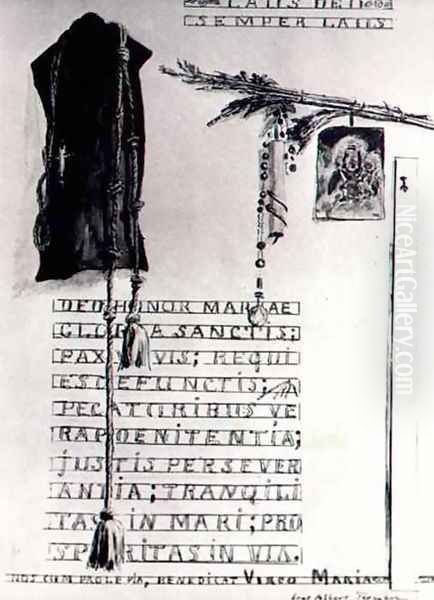 LAUS DEO
SEMPER LAUS
DEO HONOR MARIAE
GLORIA SANCTIS;
PAX VIS; REQUI
ES DEFUNCTIS;
PECATORIBUS VE
RA POENITENTIA;
JUSTIS PERSEVER
ANTIA; TRANQILI
TAS IN MARI; PRO
SPERITAS IN VIA.
NOS CUM PROLE PIA, BENEDICAT VIRGO MARIA
Albert
NiceArtGallery.com